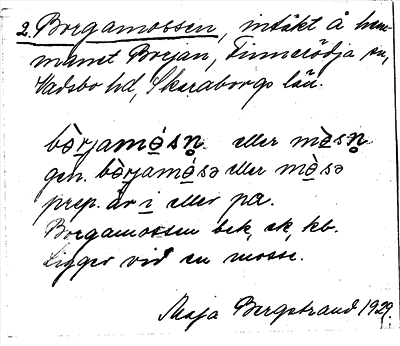 2. Borgamossen, intäkt å hem-
manet Borjan, Finnerödja sn,
Vadsbo hd, Skaraborgs län.
bò̤rjamó̤sn̥ eller mò̤sn̥
gen. bò̤rjamó̤sə eller mò̤sə
prep. är i eller på.
Borgamossen bek, ek, kb.
Ligger vid en mosse.
Maja Bergstrand 1929.